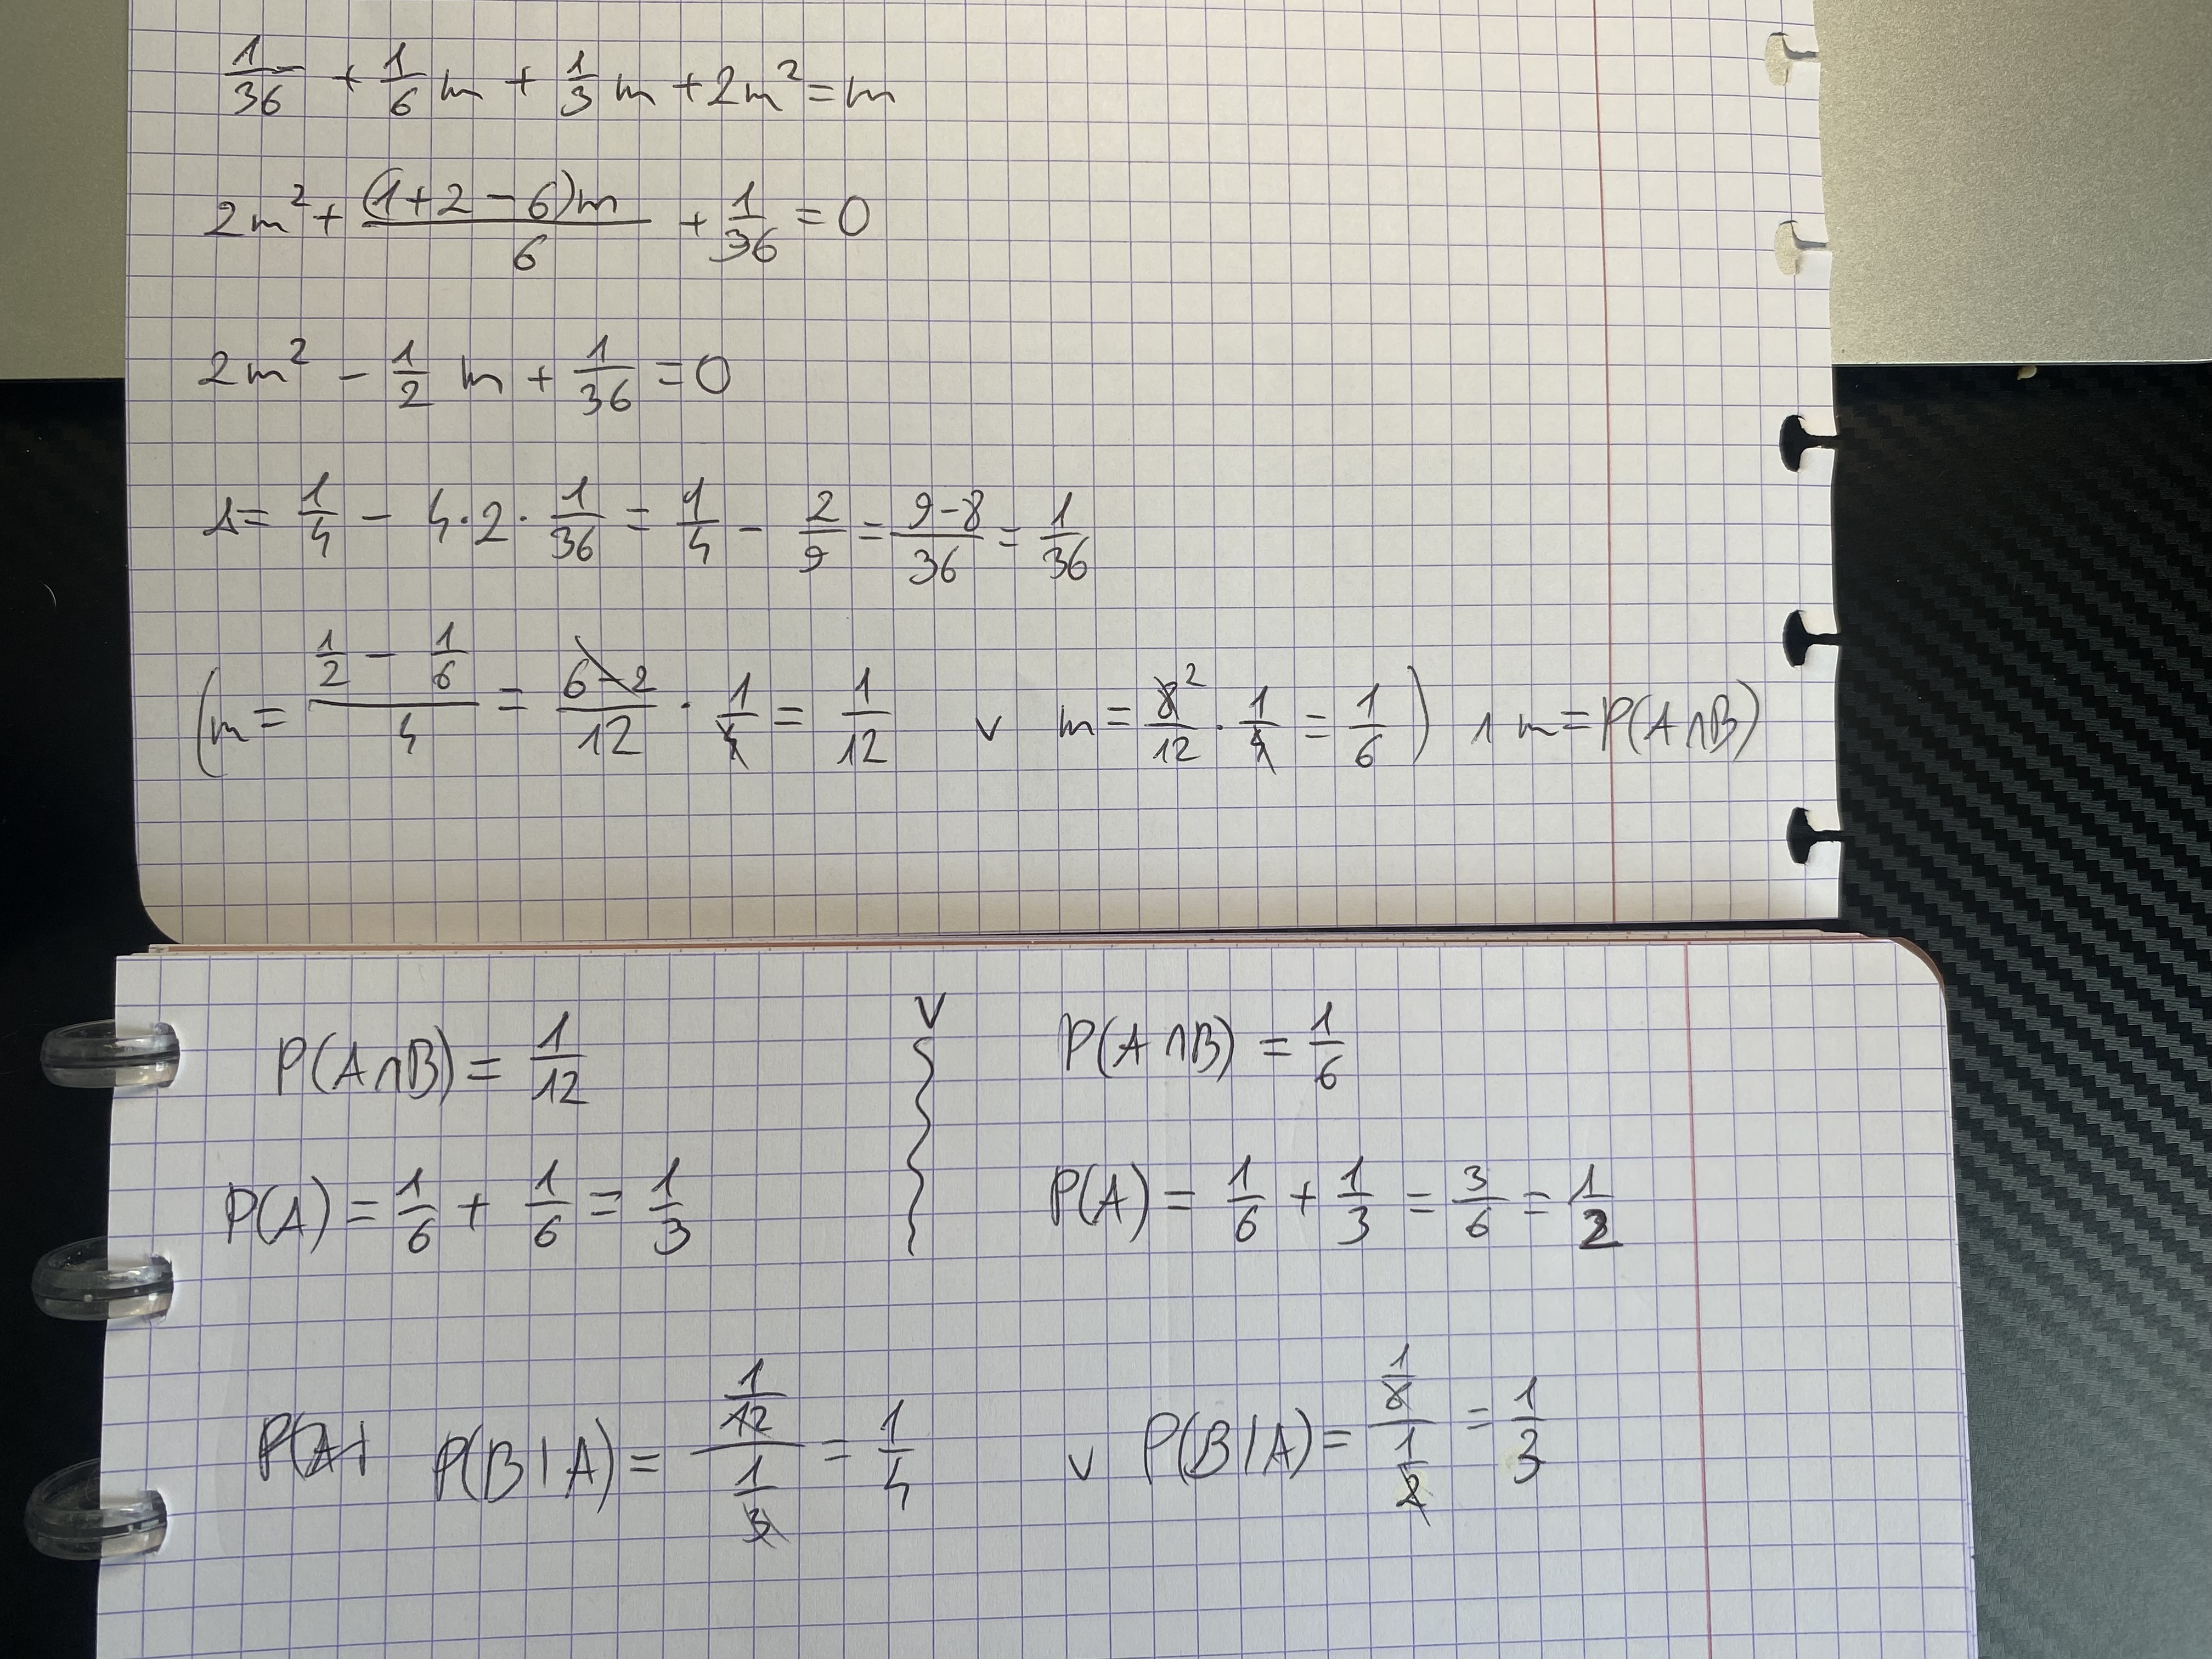 1/36 + 1/6 m + 1/3 m + 2m² = m
2m² + (1+2-6)m/6 + 1/36 = 0
2m² - 1/2 m + 1/36 = 0
Δ = 1/4 - 4·2·1/36 = 1/4 - 2/9 = (9-8)/36 = 1/36
(m = (1/2 - 1/6)/4 = (6-2)/12 · 1/4 = 1/12 ∨ m = 8²/12 · 1/4 = 1/6) ∧ m = P(A∩B)
P(A∩B) = 1/12 ∨ P(A∩B) = 1/6
P(A) = 1/6 + 1/6 = 1/3 P(A) = 1/6 + 1/3 = 3/6 = 1/2
P(A| P(B|A) = (1/12)/(1/3) = 1/4 ∨ P(B|A) = (1/6)/(1/2) = 1/3